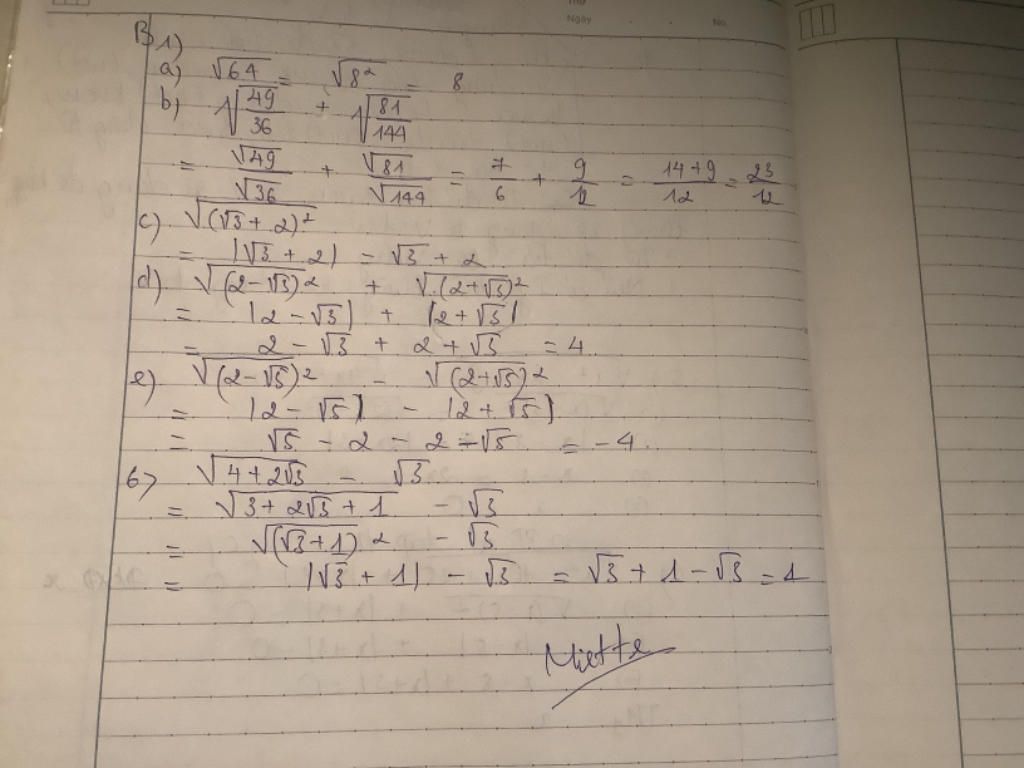 Thứ
Ngày No.
B1)
a) √64 = √8² = 8
b) √(49/36) + √(81/144)
= √49/√36 + √81/√144 = 7/6 + 9/12 = (14+9)/12 = 23/12
c) √((√3 + 2)²)
= |√3 + 2| = √3 + 2
d) √((2-√3)²) + √((2+√3)²)
= |2 - √3| + |2 + √3|
= 2 - √3 + 2 + √3 = 4
e) √((2-√5)²) - √((2+√5)²)
= |2 - √5| - |2 + √5|
= √5 - 2 - 2 - √5 = -4.
6> √(4 + 2√3) - √3
= √(3 + 2√3 + 1) - √3
= √((√3+1)²) - √3
= |√3 + 1| - √3 = √3 + 1 - √3 = 1
Miette